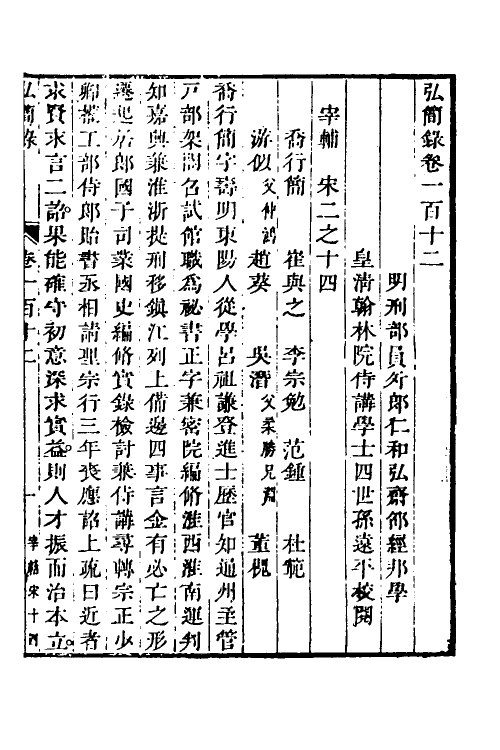 弘簡錄卷一百十二
明刑部員外郎仁和弘齋邵經邦學
皇清翰林院侍講學士四世孫遠平校閱
宰輔 宋二之十四
喬行簡 崔與之 李宗勉 范鍾 杜範
游似父仲鴻 趙葵 吳潛父柔勝兄淵 董槐
喬行簡字壽明東陽人從學呂祖謙登進士歷官知通州主管
戸部架閣召試館職爲祕書正字兼密院編脩淮西淮南運判
知嘉興兼淮浙提刑移鎭江列上備邊四事言金有必亡之形
遷起居郎國子司業國史編脩實錄檢討兼侍講尋轉宗正少
卿權工部侍郎貽書丞相請聖宗行三年喪應詔上疏曰近者
求賢求言二詔果能確守初意深求實益則人才振而治本立
弘簡錄 卷一百十二 一 宰輔宋十四